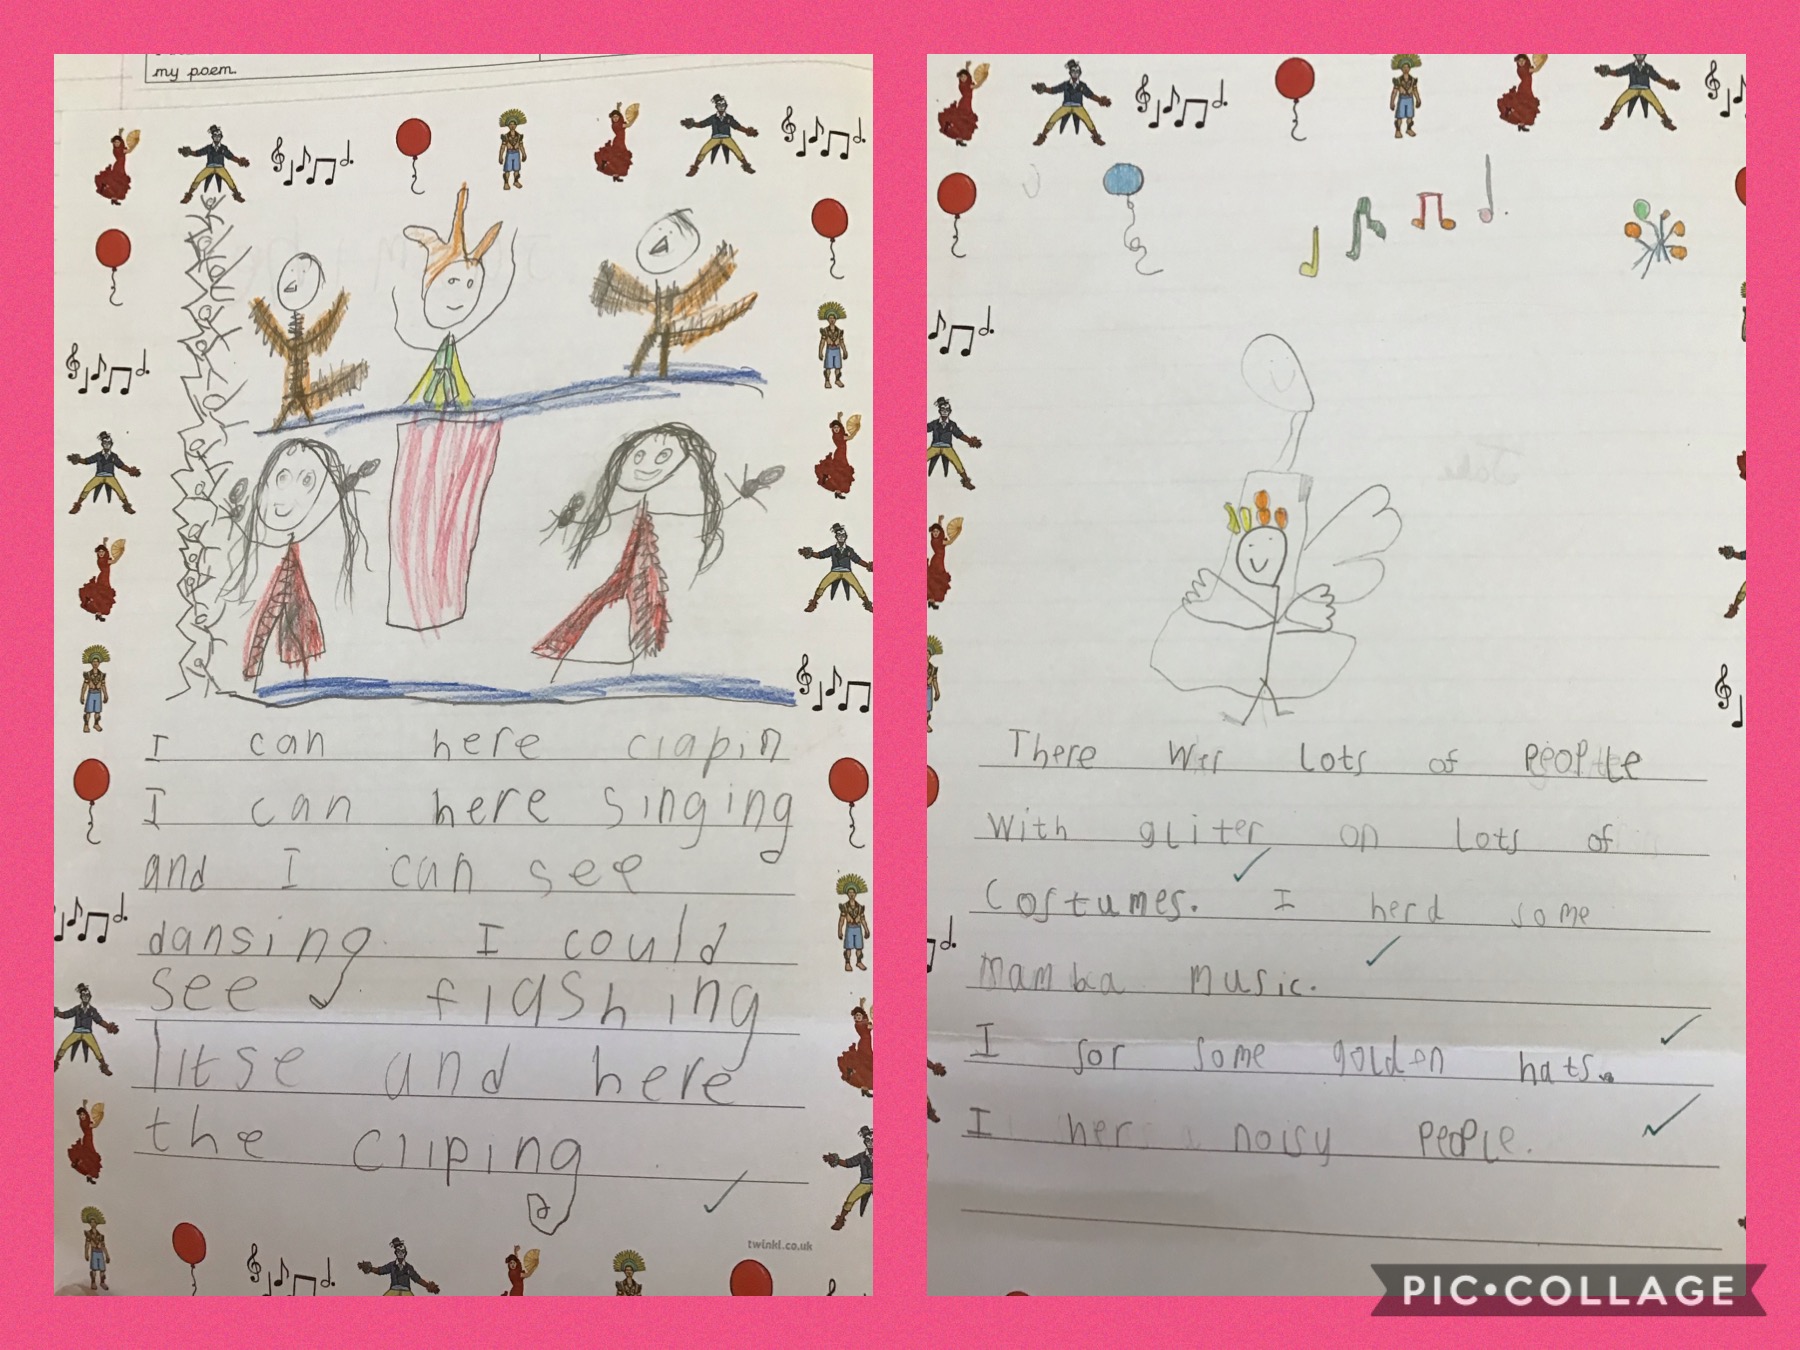 my poem
I can here clapin
I can here singing
and I can see
dansing. I could
see flashing
litse and here
the cliping
twinkl.co.uk
There wer lots of people
with gliter on lots of
costumes. I herd some
mamba music.
I sor some golden hats.
I her noisy people.
PIC•COLLAGE